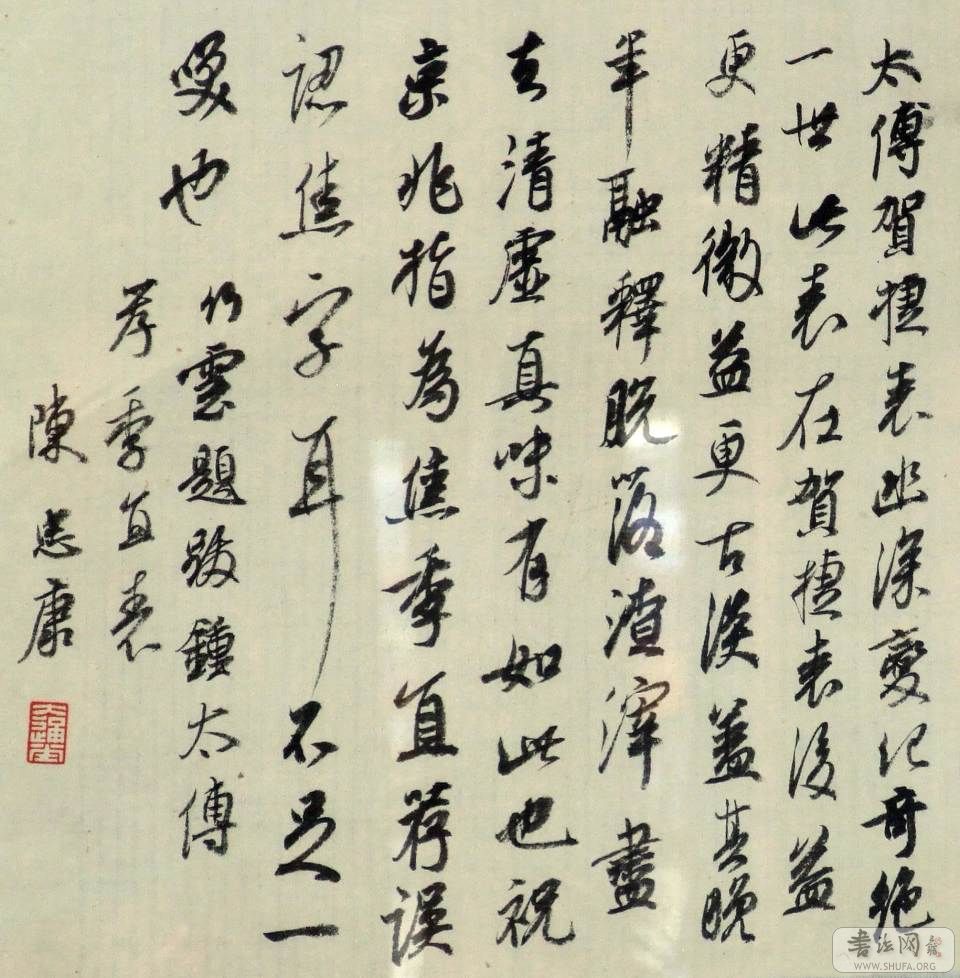 太傅賀捷表幽深變化奇絶
一世此表在賀捷表後益
更精微益更古淡蓋其晚
年融釋脫落渣滓盡
去清虛真味有如此也祝
京兆指為焦季直荐誤
認焦字耳不足一
也
竹雲題跋鍾太傅
荐季直表
陳忠康
書法网
WWW.SHUFA.ORG